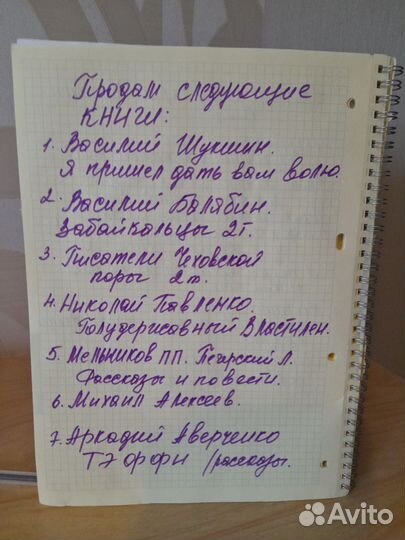 Продам следующие
КНИГИ:
1. Василий Шукшин.
Я пришел дать вам волю.
2. Василий Балябин.
Забайкальцы 2т.
3. Писатели Чеховской
поры 2т.
4. Николай Павленко.
Полудержавный Властелин.
5. Мельников ПП. Печерский А.
Рассказы и повести.
6. Михаил Алексеев.
7. Аркадий Аверченко
ТЭФФИ /рассказы.
Avito